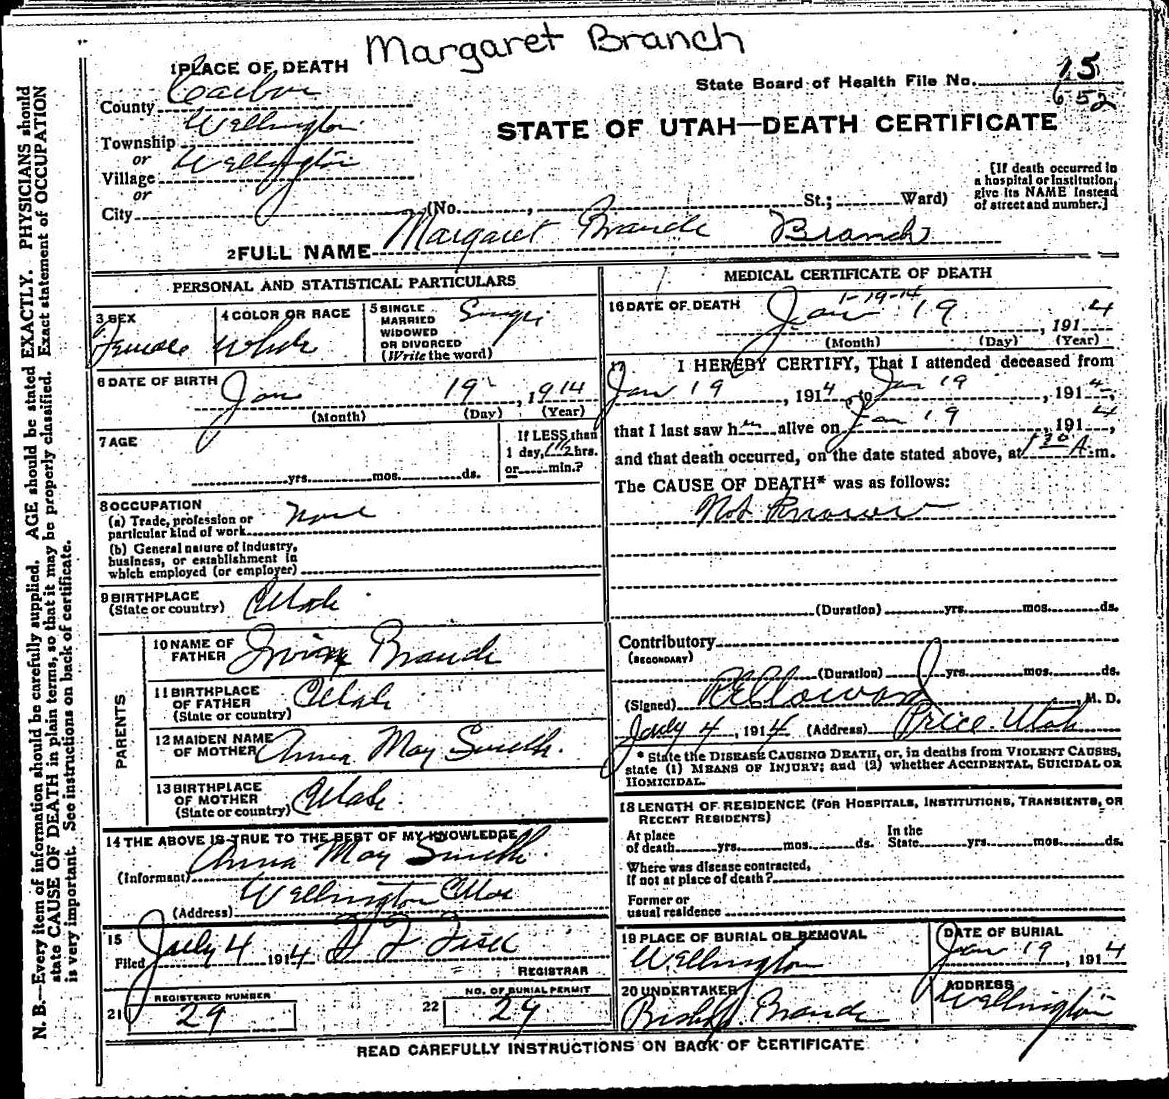 Margaret Branch
1 PLACE OF DEATH
County Carbon
Township Wellington
or
Village Wellington
or
City (No. , St.; Ward)
State Board of Health File No. 15
652
STATE OF UTAH—DEATH CERTIFICATE
[If death occurred in
a hospital or institution,
give its NAME instead
of street and number.]
2 FULL NAME Margaret Branch Branch
PERSONAL AND STATISTICAL PARTICULARS
3 SEX Female
4 COLOR OR RACE White
5 SINGLE Single
MARRIED
WIDOWED
OR DIVORCED
(Write the word)
6 DATE OF BIRTH Jan 19 , 1914
(Month) (Day) (Year)
7 AGE
yrs. mos. ds.
If LESS than
1 day, 1/2 hrs.
or min.?
8 OCCUPATION
(a) Trade, profession or
particular kind of work None
(b) General nature of industry,
business, or establishment in
which employed (or employer)
9 BIRTHPLACE
(State or country) Utah
PARENTS
10 NAME OF
FATHER Branch
11 BIRTHPLACE
OF FATHER
(State or country) Utah
12 MAIDEN NAME
OF MOTHER Anna May Smith
13 BIRTHPLACE
OF MOTHER
(State or country) Utah
14 THE ABOVE IS TRUE TO THE BEST OF MY KNOWLEDGE
(Informant) Anna May Smith
(Address) Wellington Utah
15
Filed July 4 1914
REGISTRAR
REGISTERED NUMBER
21 29
NO. OF BURIAL PERMIT
22 29
MEDICAL CERTIFICATE OF DEATH
1-19-14
16 DATE OF DEATH Jan 19 , 1914
(Month) (Day) (Year)
17 I HEREBY CERTIFY, That I attended deceased from
Jan 19 , 1914, to Jan 19 , 1914,
that I last saw her alive on Jan 19 , 1914,
and that death occurred, on the date stated above, at 1 30 A.m.
The CAUSE OF DEATH* was as follows:
Not Known
(Duration) yrs. mos. ds.
Contributory
(SECONDARY)
(Duration) yrs. mos. ds.
(Signed) M. D.
July 4, 1914 (Address) Price Utah
* State the DISEASE CAUSING DEATH, or, in deaths from VIOLENT CAUSES,
state (1) MEANS OF INJURY; and (2) whether ACCIDENTAL, SUICIDAL OR
HOMICIDAL.
18 LENGTH OF RESIDENCE (FOR HOSPITALS, INSTITUTIONS, TRANSIENTS, OR
RECENT RESIDENTS)
At place
of death yrs. mos. ds.
In the
State yrs. mos. ds.
Where was disease contracted,
if not at place of death?
Former or
usual residence
19 PLACE OF BURIAL OR REMOVAL
Wellington
DATE OF BURIAL
Jan 19 , 1914
20 UNDERTAKER
Bishop Branch
ADDRESS
Wellington
READ CAREFULLY INSTRUCTIONS ON BACK OF CERTIFICATE
N. B.—Every item of information should be carefully supplied. AGE should be stated EXACTLY. PHYSICIANS should
state CAUSE OF DEATH in plain terms, so that it may be properly classified. Exact statement of OCCUPATION
is very important. See instructions on back of certificate.